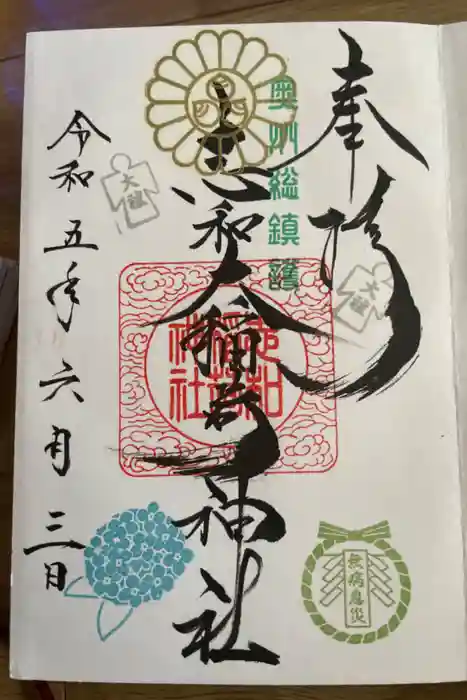 奉拝
奥州総鎮護
志和稲荷神社
志和
稲荷
神社
令和五年六月三日
大祓
大祓
無病息災